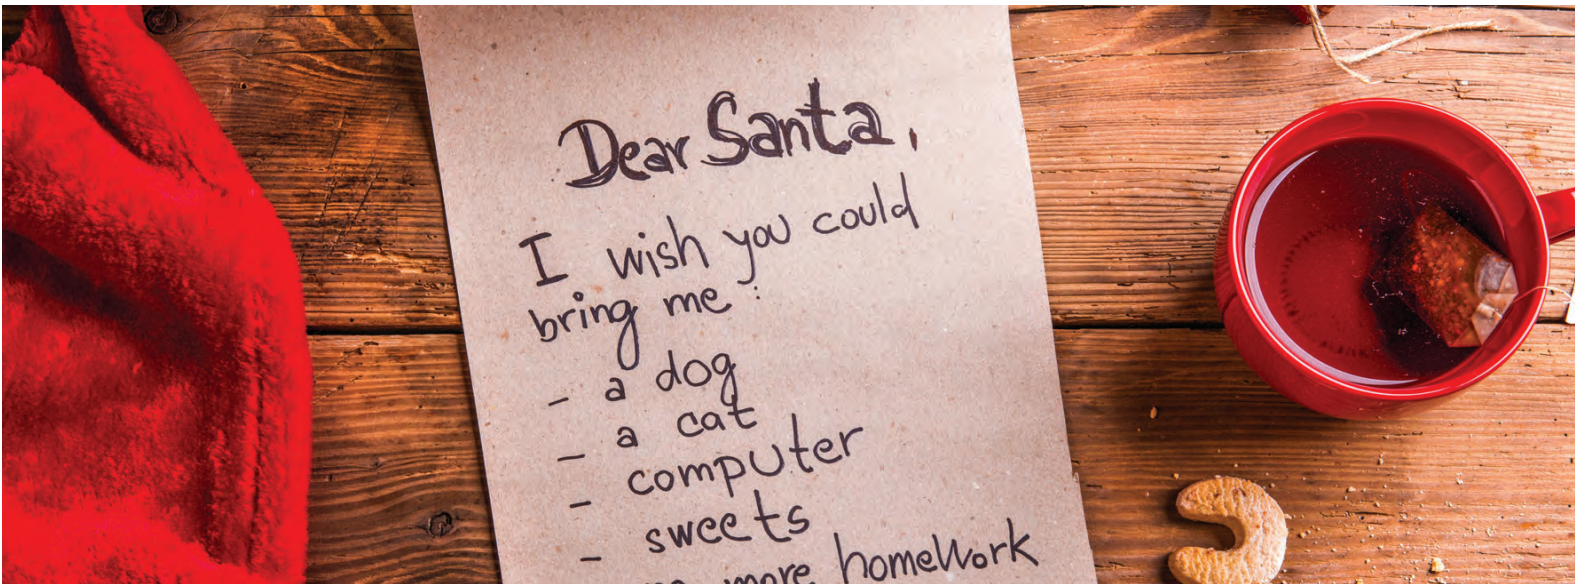 Dear Santa,
I wish you could
bring me:
- a dog
- a cat
- computer
- sweets
more homework